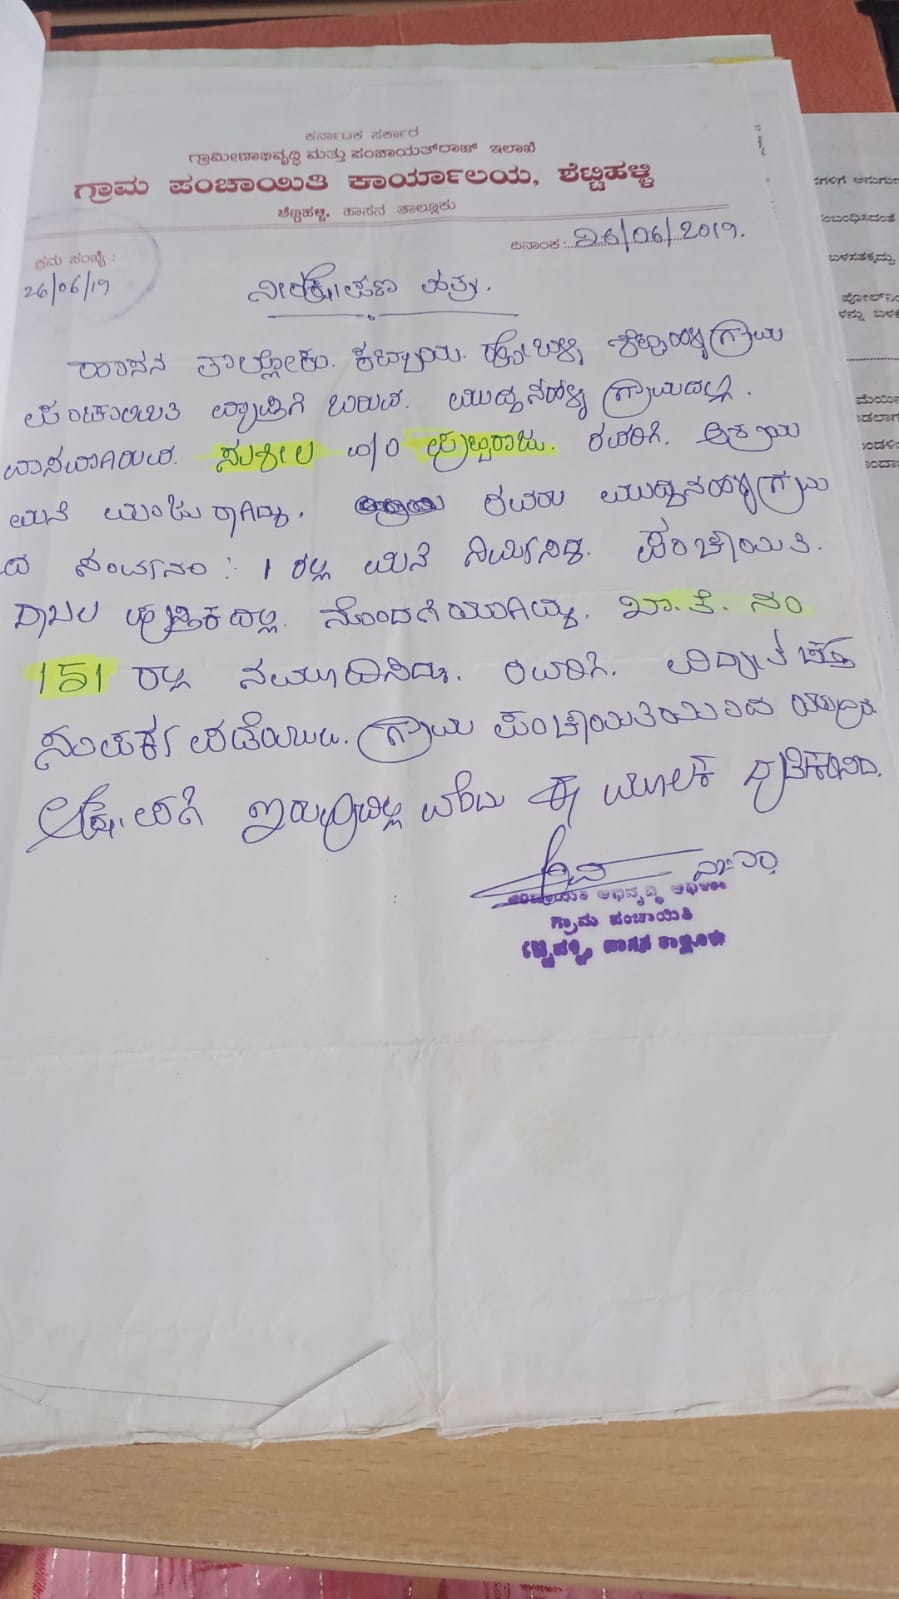 ಕರ್ನಾಟಕ ಸರ್ಕಾರ
ಗ್ರಾಮೀಣಾಭಿವೃದ್ಧಿ ಮತ್ತು ಪಂಚಾಯತ್‌ರಾಜ್ ಇಲಾಖೆ
ಗ್ರಾಮ ಪಂಚಾಯಿತಿ ಕಾರ್ಯಾಲಯ, ಶೆಟ್ಟಿಹಳ್ಳಿ
ಶೆಟ್ಟಿಹಳ್ಳಿ, ಹಾಸನ ತಾಲ್ಲೂಕು
ಕ್ರಮ ಸಂಖ್ಯೆ :
26/06/19
ದಿನಾಂಕ: 26/06/2019.
ಪತ್ರ.
ಹಾಸನ ತಾಲ್ಲೋಕು. ಕಟ್ಟಾಯ. ಹೋಬಳಿ, ಶೆಟ್ಟಿಹಳ್ಳಿ ಗ್ರಾಮ
ಪಂಚಾಯಿತಿ ವ್ಯಾಪ್ತಿಗೆ ಬರುವ. ಮುದ್ದನಹಳ್ಳಿ ಗ್ರಾಮದಲ್ಲಿ.
ವಾಸವಾಗಿರುವ. ಸುಶೀಲ ಪುಟ್ಟರಾಜು. ರವರಿಗೆ. ಆಶ್ರಯ
ಮನೆ ಮಂಜುರಾಗಿದ್ದು. ರವರು ಮುದ್ದನಹಳ್ಳಿ ಗ್ರಾಮ
ದ ಸರ್ವೆನಂ : 1 ರಲ್ಲಿ ಮನೆ ನಿರ್ಮಿಸಿದ್ದು. ಪಂಚಾಯಿತಿ.
ದಾಖಲ ಪುಸ್ತಕದಲ್ಲಿ. ನೊಂದಣಿಯಾಗಿದ್ದು. ಖಾ.ತೆ. ನಂ
151 ರಲ್ಲಿ ನಮೂದಿಸಿದ್ದು. ಇವರಿಗೆ. ವಿದ್ಯುತ್
ಸಂಪರ್ಕ ಪಡೆಯಲು. ಗ್ರಾಮ ಪಂಚಾಯಿತಿಯಿಂದ ಯಾವುದೇ
ಇರುವುದಿಲ್ಲ ವೆಂದು ಈ ಮೂಲಕ ದೃಢಿಕರಿಸಿದೆ.
ಪಂಚಾಯಿತಿ ಅಭಿವೃದ್ಧಿ ಅಧಿಕಾರಿ
ಗ್ರಾಮ ಪಂಚಾಯಿತಿ
ಶೆಟ್ಟಿಹಳ್ಳಿ, ಹಾಸನ ತಾಲ್ಲೂಕು